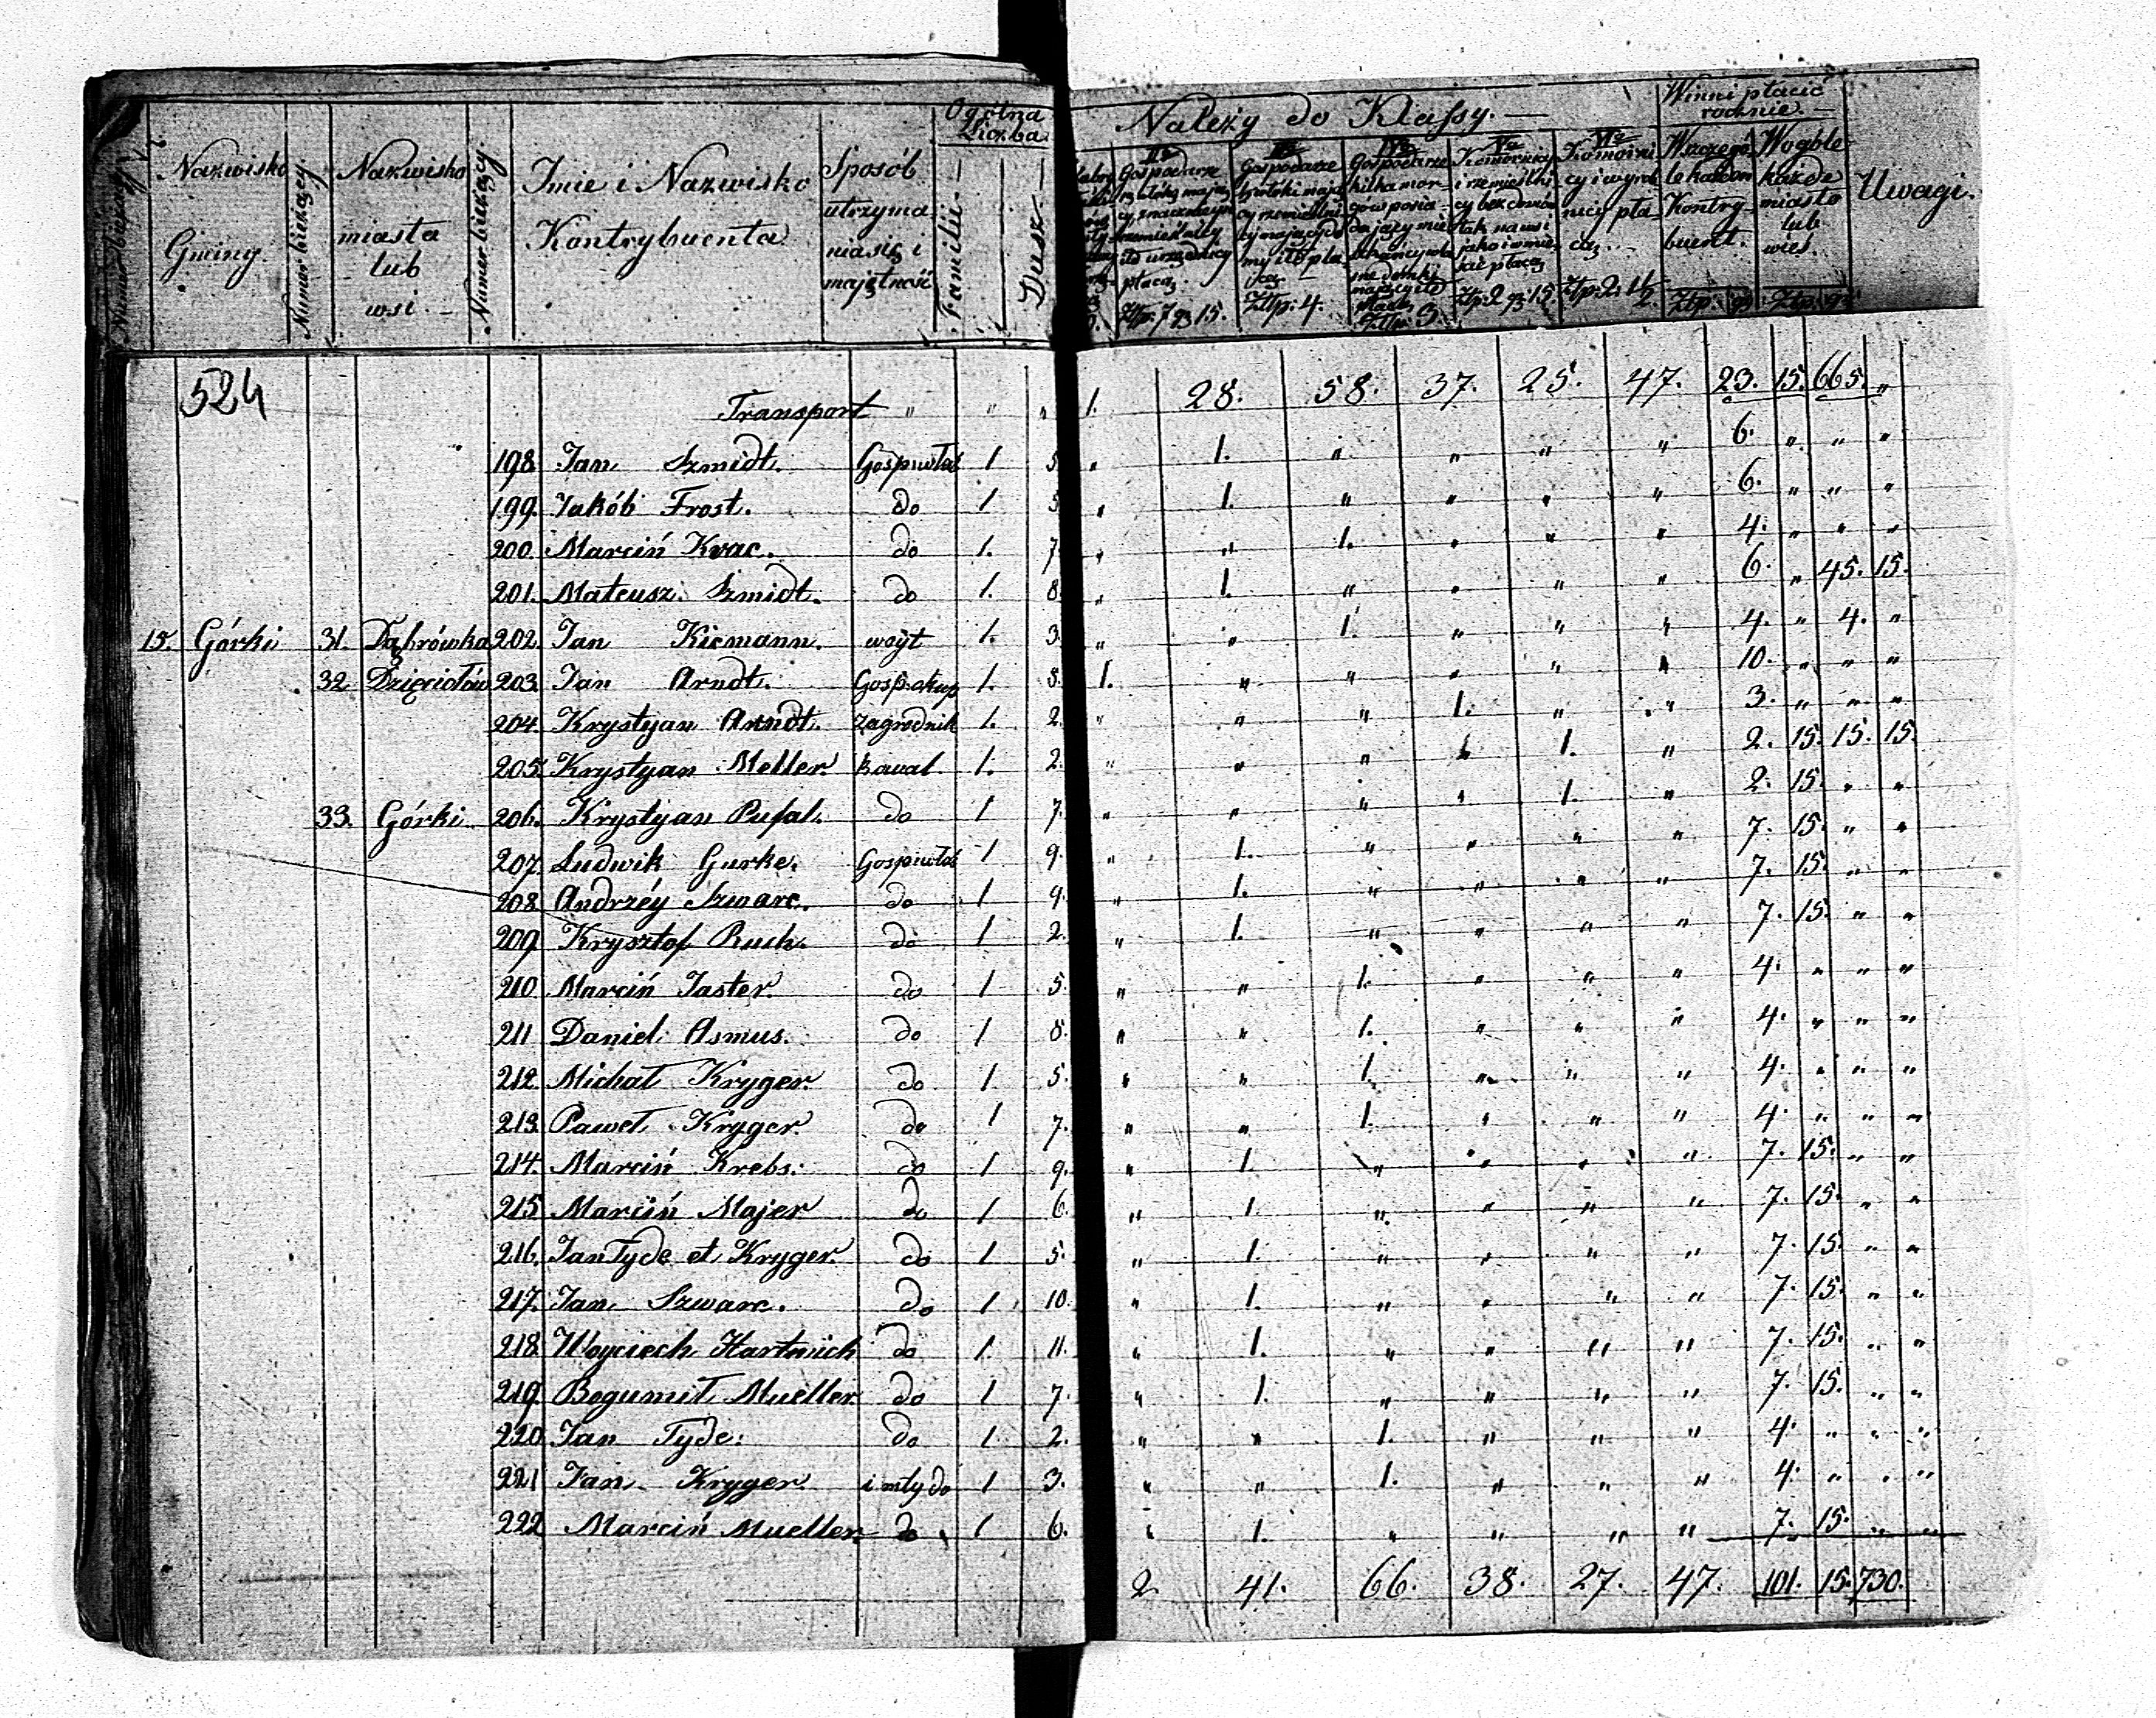 Numer bieżący
Nazwisko Gminy
Numer bieżący.
Nazwisko miasta lub wsi.
Numer bieżący.
Imie i Nazwisko Kontrybuenta
Sposób utrzyma nia się i majętność
Ogólna Liczba
Familii
Dusz
Należy do Klassy.
Gospodarze
Złp: 7 gr 15.
Gospodarze
Złp: 4.
Gospodarze kilka mor
Złp. 3
Komornicy i rzemieślni cy bez
Złp: 2 gr: 15
VIa Komorni cy i wyrob nicy pła cą
Złp: 2: 1/2
Winni płacić rocznie.
Wszczegó le każden Kontry buent.
Złp: gr:
Wogóle każde miasto lub wieś.
Złp: gr:
Uwagi.
524
Transport " " " 1. 28. 58. 37. 25. 47. 23. 15. 665. "
198. Jan Szmidt. 1 5 " 1. " " " " 6. " " "
199. Jakób Frost. do 1 5 " 1. " " " " 6. " " "
200. Marciń Kvac. do 1. 7 " " 1. " " " 4. " " "
201. Mateusz Szmidt. do 1. 8. " 1. " " " " 6. " 45. 15.
15. Górki 31. Dąbrówka 202. Jan Kiemann. woyt 1. 3. " " 1. " " " 4. " 4. "
32 Dzięciołów 203. Jan Arndt. Gosp. okup 1. 8. 1. " " " " " 10. " " "
204. Krystyan Arndt. zagrodnik 1. 2. " " " 1. " " 3. " " "
205. Krystyan Meller. kowal 1. 2. " " " " 1. " 2. 15. 15. 15.
33. Górki 206. Krystyan Pufal. do 1 7. " " " " 1. " 2. 15. " "
207. Ludwik Gurke. 1 9. " 1. " " " " 7. 15. " "
208 Andrzéy Szwarc. do 1 9. " 1. " " " " 7. 15. " "
209 Krysztof Ruch. do 1 2. " 1. " " " " 7. 15. " "
210 Marciń Jaster. do 1 5. " " 1. " " " 4. " " "
211 Daniel Asmus. do 1 8. " " 1. " " " 4. " " "
212. Michał Kryger. do 1. 5. " " 1. " " " 4. " " "
213. Paweł Kryger. do 1 7. " " 1. " " " 4. " " "
214. Marciń Krebs. do 1 9. " 1. " " " " 7. 15. " "
215 Marciń Majer do 1 6. " 1. " " " " 7. 15. " "
216. Jan Tyde et Kryger. do 1 5. " 1. " " " " 7. 15. " "
217. Jan Szwarc. do 1 10. " 1. " " " " 7. 15. " "
218 Woyciech Hartwich do 1. 11. " 1. " " " " 7. 15. " "
219 Bogumił Mueller. do 1 7. " 1. " " " " 7. 15. " "
220 Jan Tyde. do 1. 2. " " 1. " " " 4. " " "
221 Jan Kryger. i mły do 1 3. " " 1. " " " 4. " " "
222 Marciń Mueller. do 1 6. " 1. " " " " 7. 15. " "
2 41. 66. 38. 27. 47. 101. 15. 730.